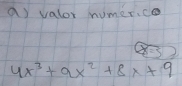 a) valor numérico
x=3
4x³+9x²+8x+9